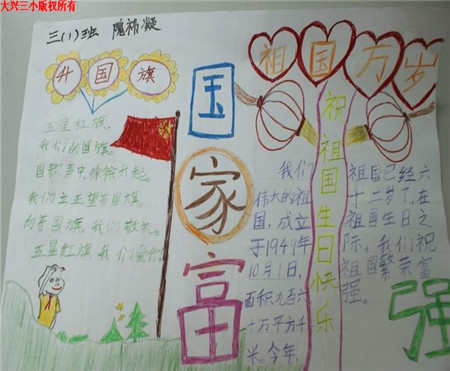 大兴三小版权所有
三(1)班 隗祎凝
升国旗
祖国万岁
国家富强
祝祖国生日快乐
五星红旗
我们的国旗
国歌声中徐徐升起
我们立正望着国旗
向着国旗 我们敬礼
五星红旗 我们爱你
我们
伟大的祖
国,成立
于1949年
10月1日,
面积九百六
十万平方千
米。今年,
祖国已经六
十二岁了,在
祖国生日之
际,我们祝
祖国繁荣富
强。